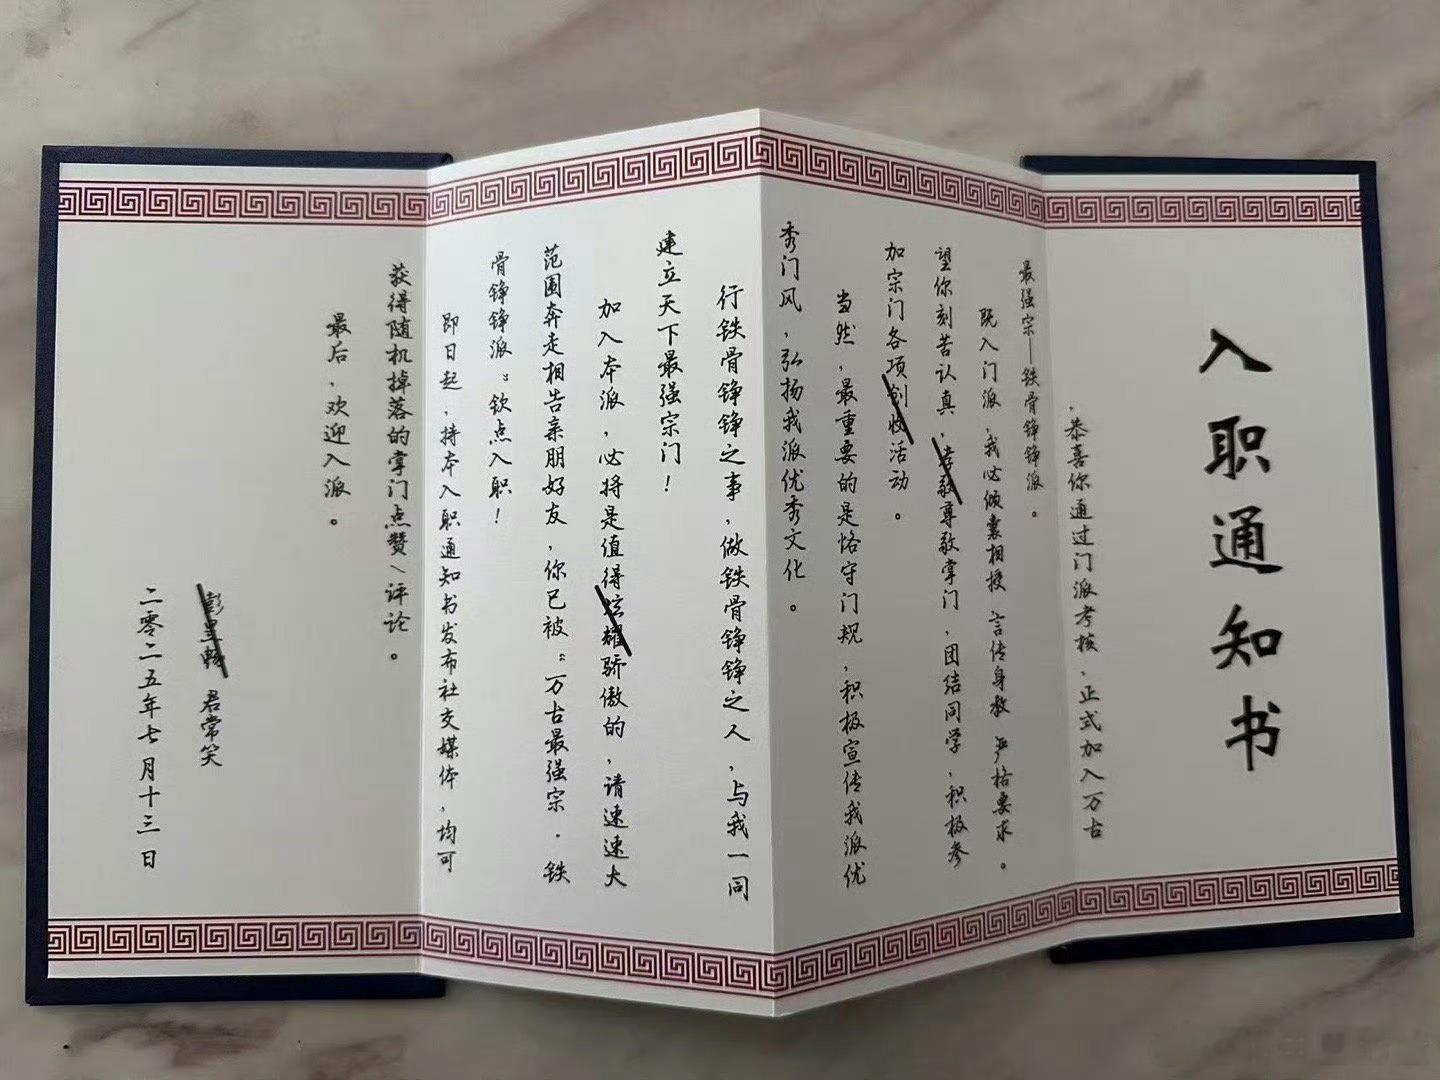 入职通知书
，恭喜你通过门派考核，正式加入万古
最强宗—铁骨铮铮派。
既入门派，我必倾囊相授 言传身教 严格要求。
望你刻苦认真，孝敬尊敬掌门，团结同学，积极参
加宗门各项创收活动。
当然，最重要的是恪守门规，积极宣传我派优
秀门风，弘扬我派优秀文化。
行铁骨铮铮之事，做铁骨铮铮之人，与我一同
建立天下最强宗门！
加入本派，必将是值得炫耀骄傲的，请速速大
范围奔走相告亲朋好友，你已被“万古最强宗·铁
骨铮铮派”钦点入职！
即日起，持本入职通知书发布社交媒体，均可
获得随机掉落的掌门点赞\评论。
最后，欢迎入派。
彭昱畅 君常笑
二零二五年七月十三日